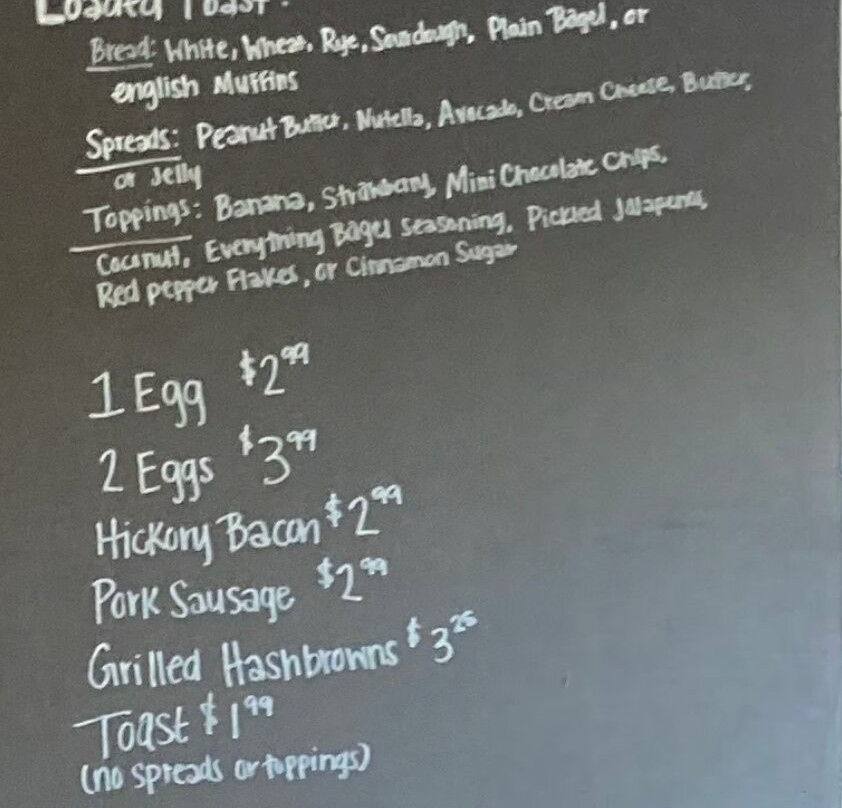 Loaded Toast:
Bread: White, Wheat, Rye, Sourdough, Plain Bagel, or
english Muffins
Spreads: Peanut Butter, Nutella, Avocado, Cream Cheese, Butter,
or Jelly
Toppings: Banana, Strawberry, Mini Chocolate Chips,
Coconut, Everything Bagel Seasoning, Pickled Jalapenos,
Red pepper Flakes, or Cinnamon Sugar
1 Egg $2.99
2 Eggs $3.99
Hickory Bacon $2.99
Pork Sausage $2.99
Grilled Hashbrowns $3.25
Toast $1.99
(no spreads or toppings)